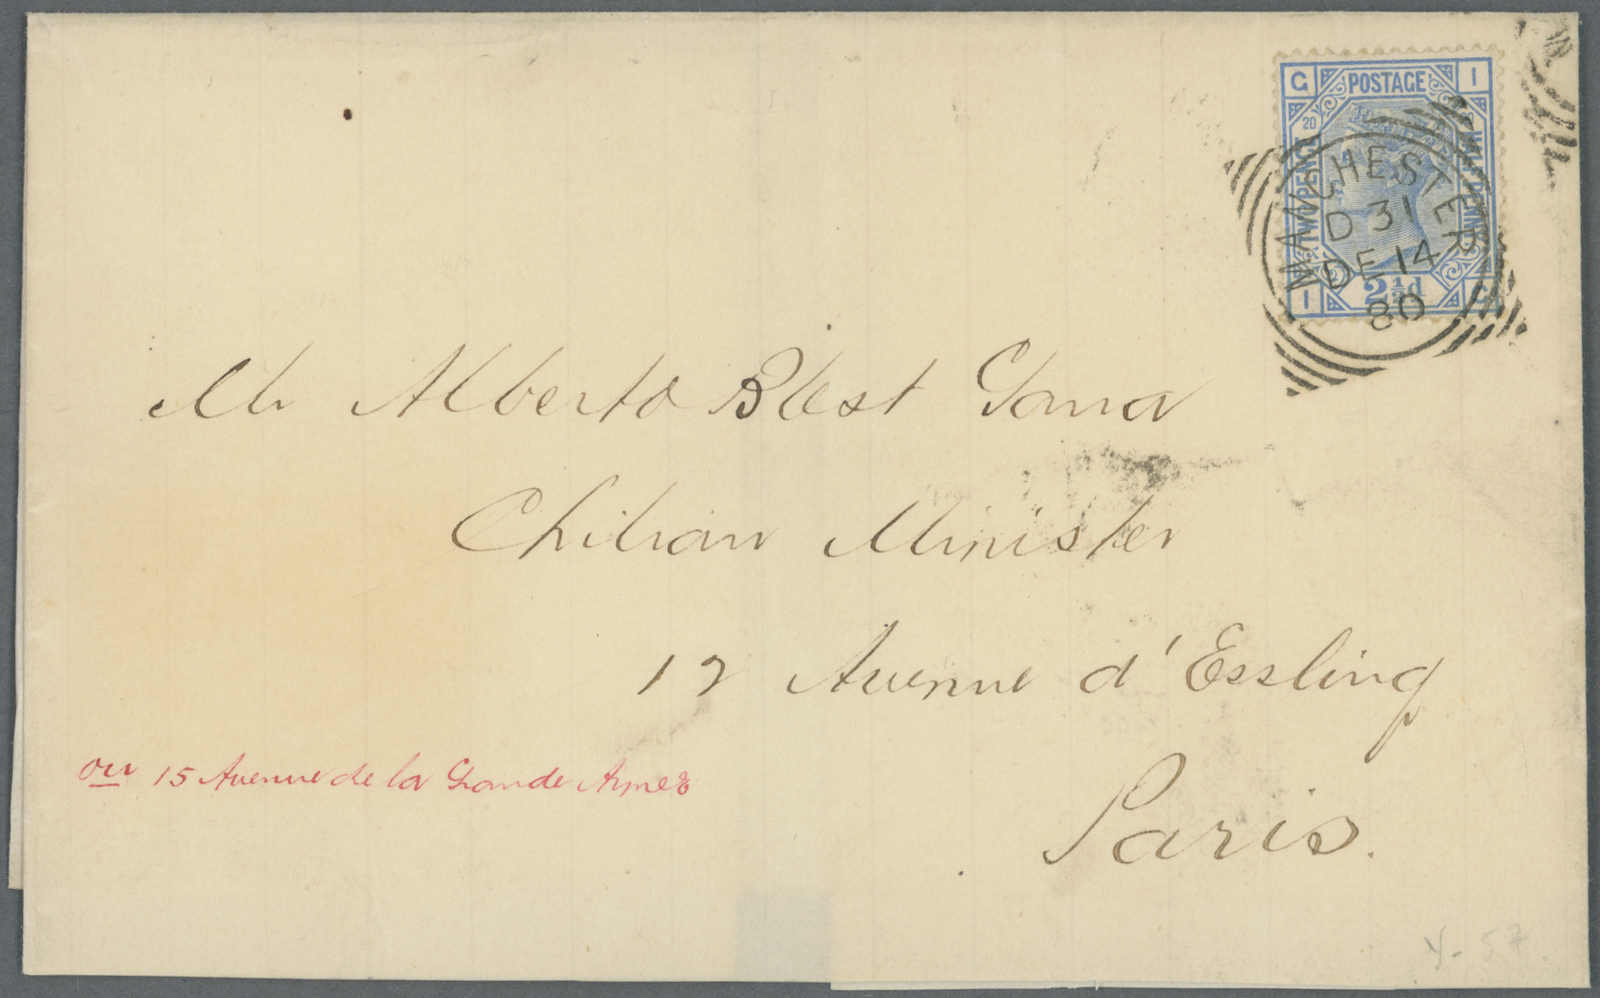 G POSTAGE I
20
TWO PENCE
HALF PENNY
I 2½d G
MANCHESTER
D 31
DE 14
80
Mr Alberto Blest Gana
Chilian Minister
12 Avenue d'Essling
ou 15 Avenue de la Grande Armée
Paris.